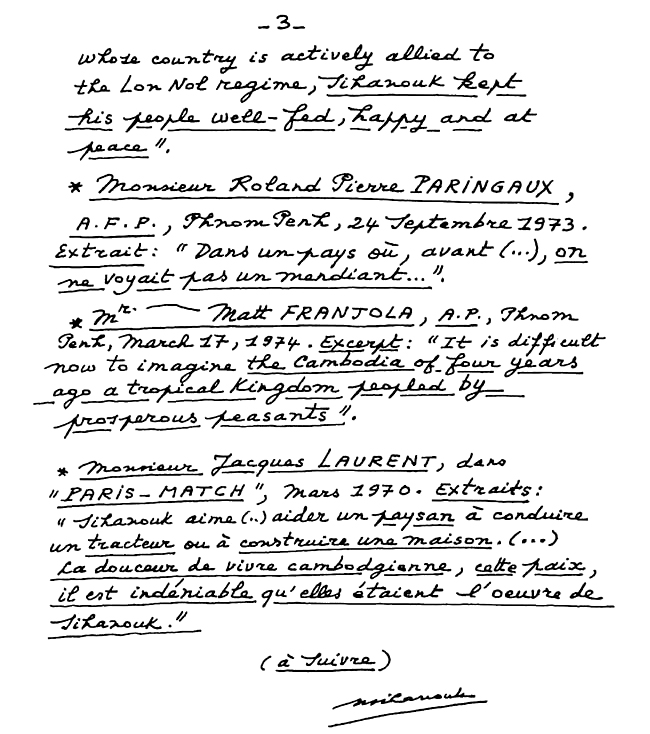 - 3 -
whose country is actively allied to
the Lon Nol regime, Sihanouk kept
his people well-fed, happy and at
peace".
* Monsieur Roland Pierre PARINGAUX,
A.F.P., Phnom Penh, 24 Septembre 1973.
Extrait : "Dans un pays où, avant (...), on
ne voyait pas un mendiant...".
* Mr. — Matt FRANJOLA, A.P., Phnom
Penh, March 17, 1974. Excerpt : "It is difficult
now to imagine the Cambodia of four years
ago a tropical Kingdom peopled by
prosperous peasants".
* Monsieur Jacques LAURENT, dans
"PARIS-MATCH", Mars 1970. Extraits :
"Sihanouk aime (..) aider un paysan à conduire
un tracteur ou à construire une maison. (...)
La douceur de vivre cambodgienne, cette paix,
il est indéniable qu'elles étaient l'oeuvre de
Sihanouk."
(à suivre)
Sihanouk